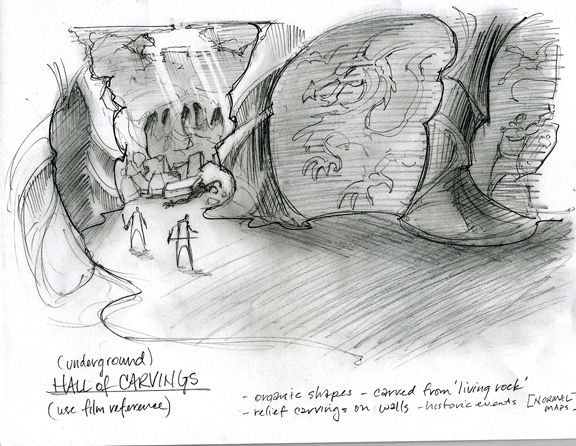 (underground)
HALL of CARVINGS
(use film reference)
- organic shapes - carved from 'living rock'
- relief carvings on walls - historic events [NORMAL
MAPS -